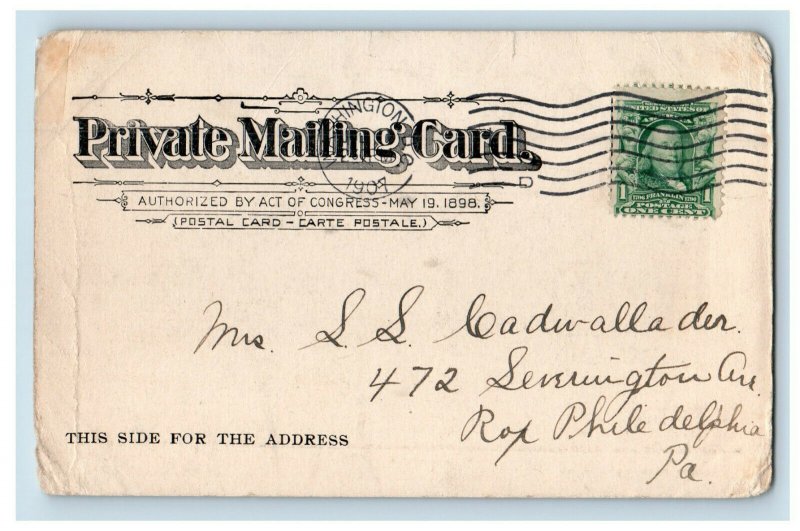 Private Mailing Card.
AUTHORIZED BY ACT OF CONGRESS-MAY 19, 1898.
(POSTAL CARD - CARTE POSTALE.)
1907
D
UNITED STATES OF
AMERICA
1
1706 FRANKLIN 1790
POSTAGE
ONE CENT
Mrs. S. S. Cadwallader.
472 Severington Ave.
Rox Philedelphia
Pa.
THIS SIDE FOR THE ADDRESS